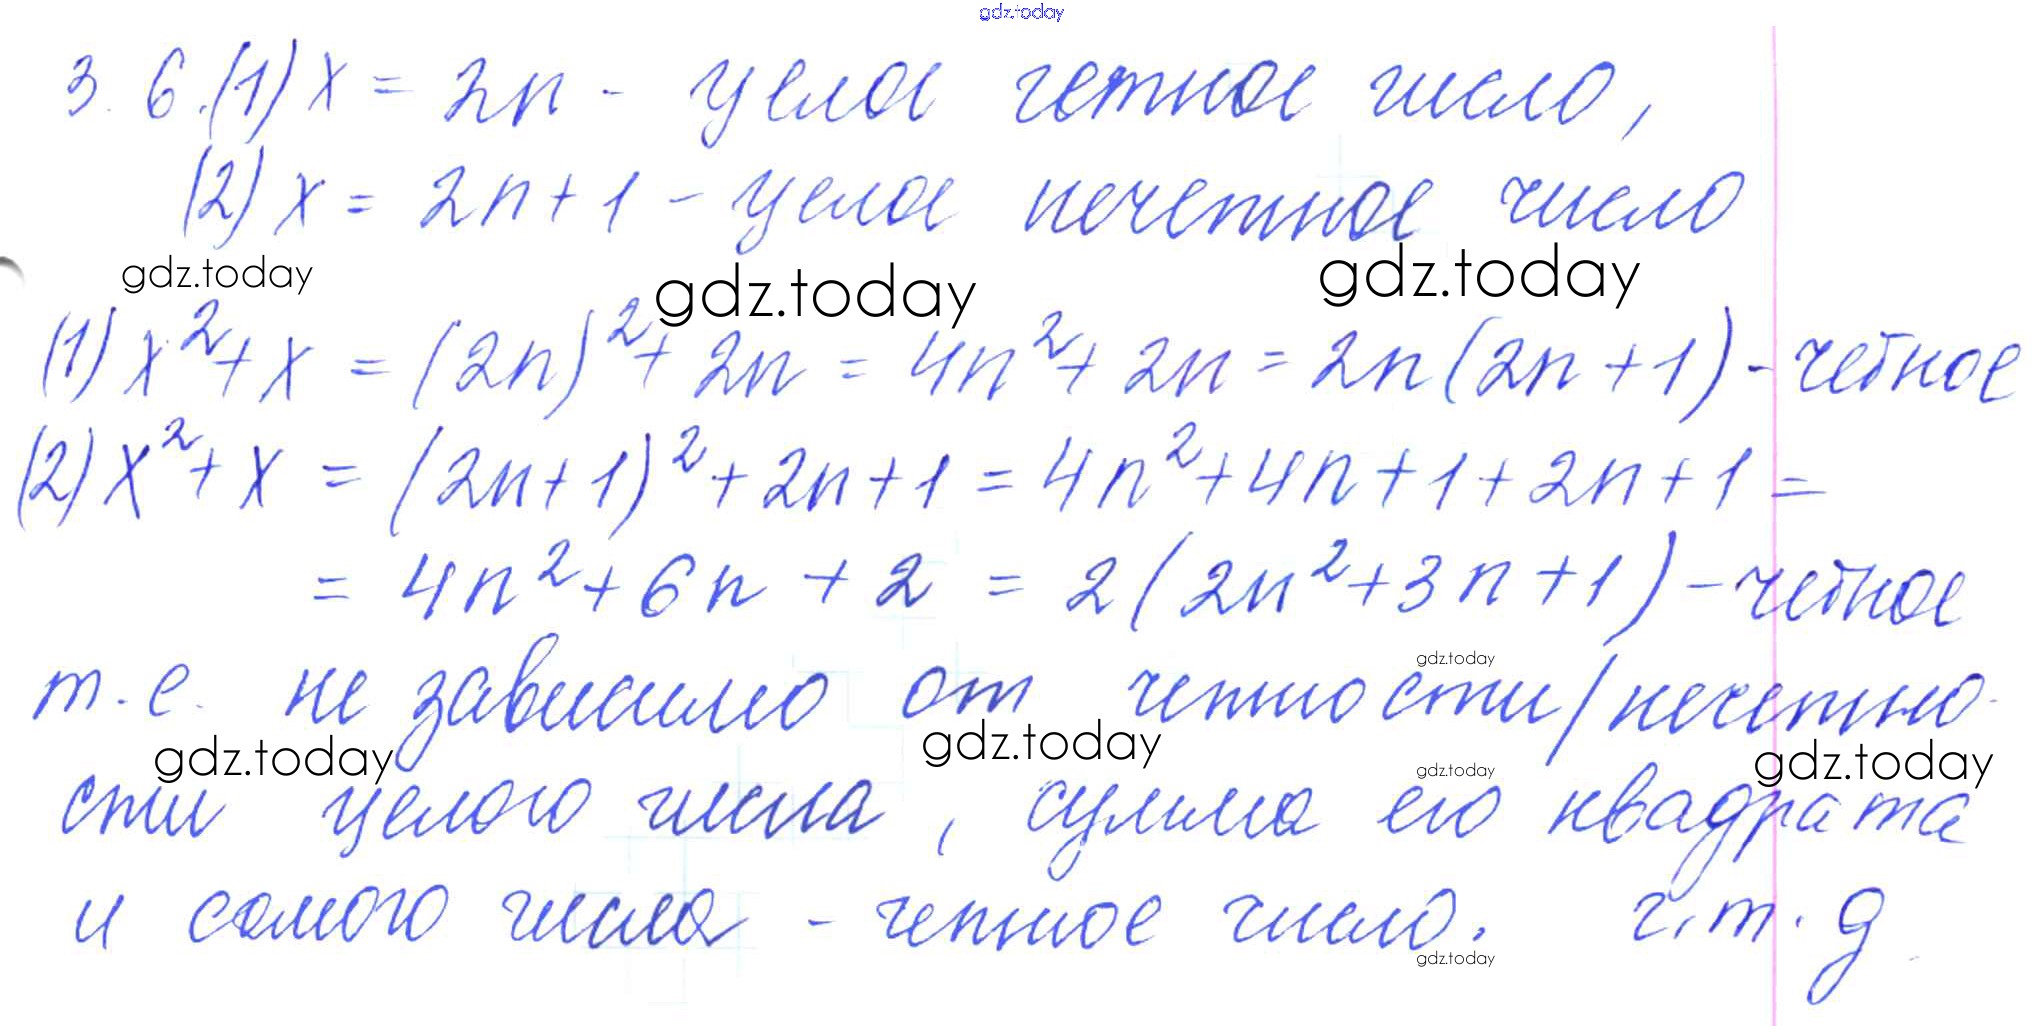 gdz.today
3.6.(1) x = 2n - целое четное число,
(2) x = 2n+1 - целое нечетное число
gdz.today gdz.today gdz.today
(1) x²+x = (2n)²+2n = 4n²+2n = 2n(2n+1) - четное
(2) x²+x = (2n+1)²+2n+1 = 4n²+4n+1+2n+1 =
= 4n²+6n+2 = 2(2n²+3n+1) - четное
gdz.today
т.е. не зависимо от четности/нечетно-
gdz.today gdz.today gdz.today gdz.today
сти целого числа, сумма его квадрата
и самого числа - четное число. ч.т.д
gdz.today